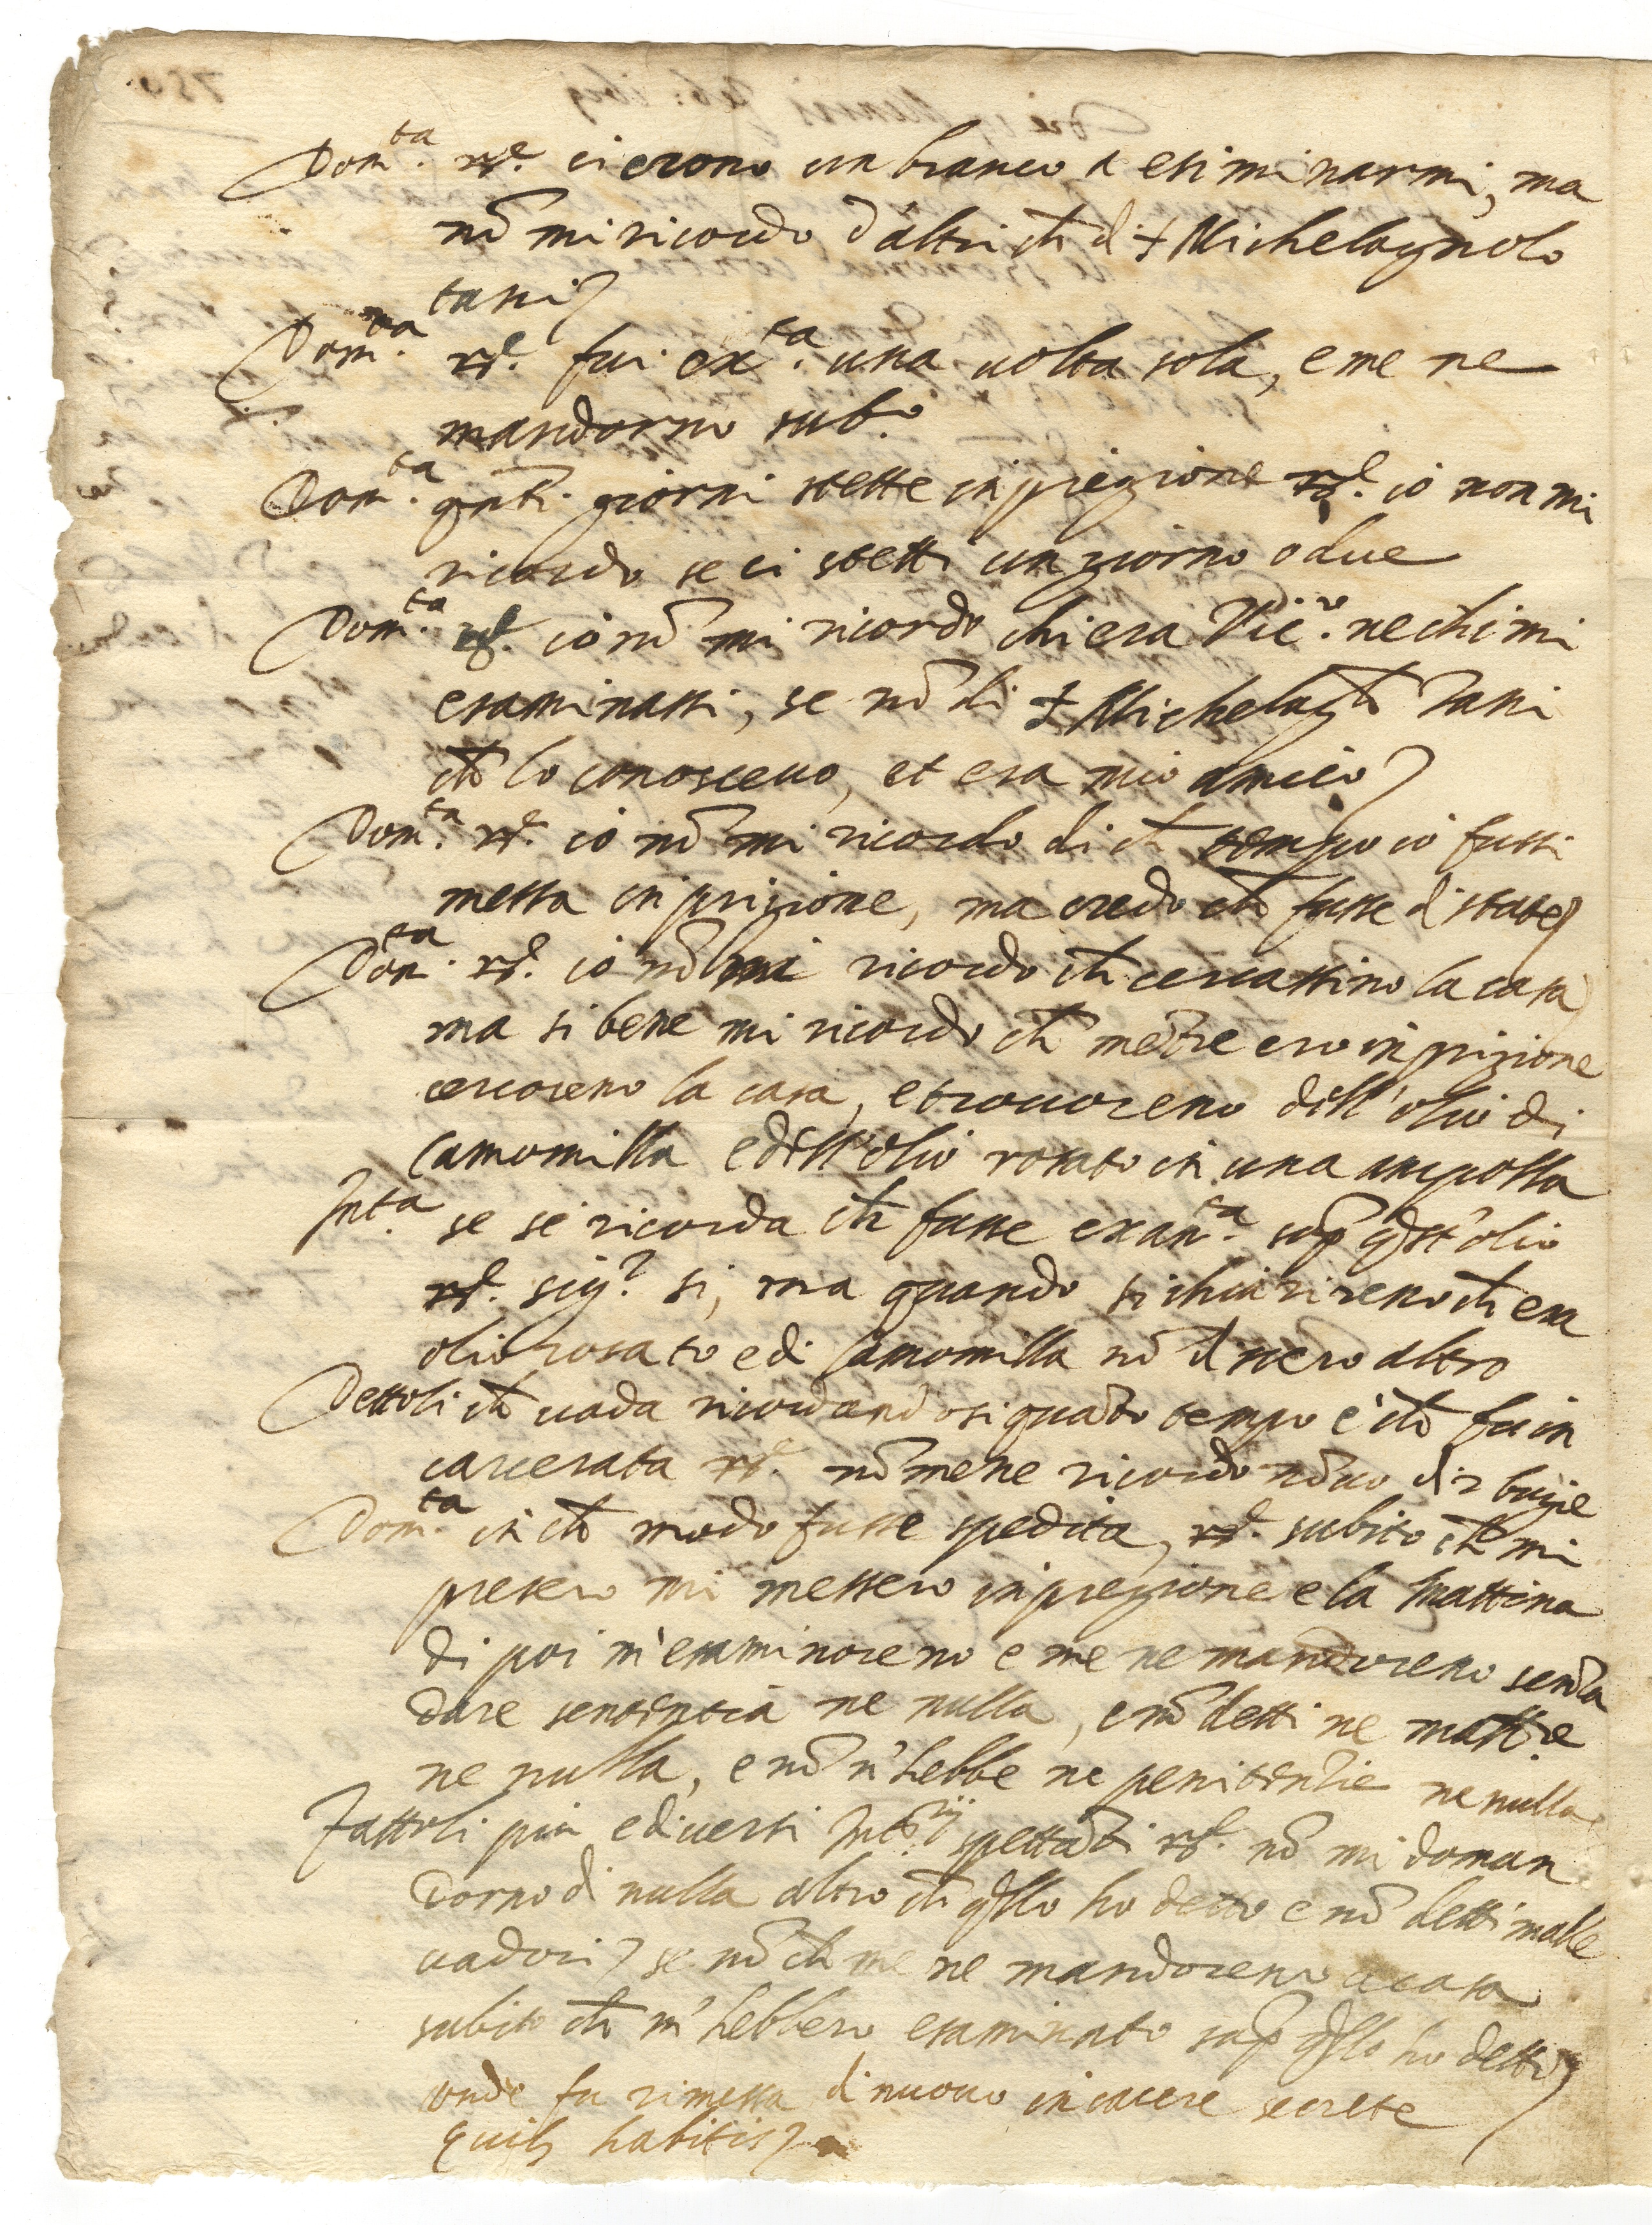 Dom.ta rx.e ci erono un branco a esiminarmi, ma
nō mi ricordo d'altri ch di s Michelagnolo
tassi
Dom.ta rx.e fui exa.ta una uolta sola, e me ne
mandorno sub.o
Dom.ta qnti. giorni stette in pregione rx.e io non mi
ricordo se ci stetti un giorno o due
Dom.ta rx.e io nō mi ricordo chi era Vic.o ne chi mi
esaminassi, se nō di s Michelag.lo Tassi
ch lo conosceuo, et era mio amico
Dom.ta rx.e io nō mi ricordo di ch tempo io fussi
messa in prizione, ma credo ch fusse di state
Dom.ta rx.e io nō mi ricordo ch cercassino la casa
ma si bene mi ricordo ch mētre ero in prizione
cercoreno la casa, e trouoreno dell'olio di
Camomilla e dell'olio rosato in una ampolla
Int.ta se se ricorda ch fusse exan.ta sop qst'olio
rx.e sig.r si, ma quando si chiarireno ch era
olio rosato e di Camomilla nō dissero altro
Dettoli ch uada ricordandosi quāto tempo è ch fu in
carcerata rx.e nō me ne ricordo nō uo dir bugie
Dom.ta in ch modo fusse spedita, rx.e subito ch mi
presero mi messero in pregione e la mattina
di poi m'esaminoreno e me ne mandoreno senza
dare sententia ne nulla, e nō detti ne mall.e
ne nulla, e nō n'hebbe ne penitentie ne nulla
Fattoli piu e diuersi Int.rij spettāti rx.e nō mi doman
dorno di nulla altro ch qllo ho detto e nō detti malle
uadori se nō ch me ne mandoreno a casa
subito ch m'hebbero esaminato sop qllo ho detto
onde fu rimessa di nuouo in carcere secrete
quib habitis